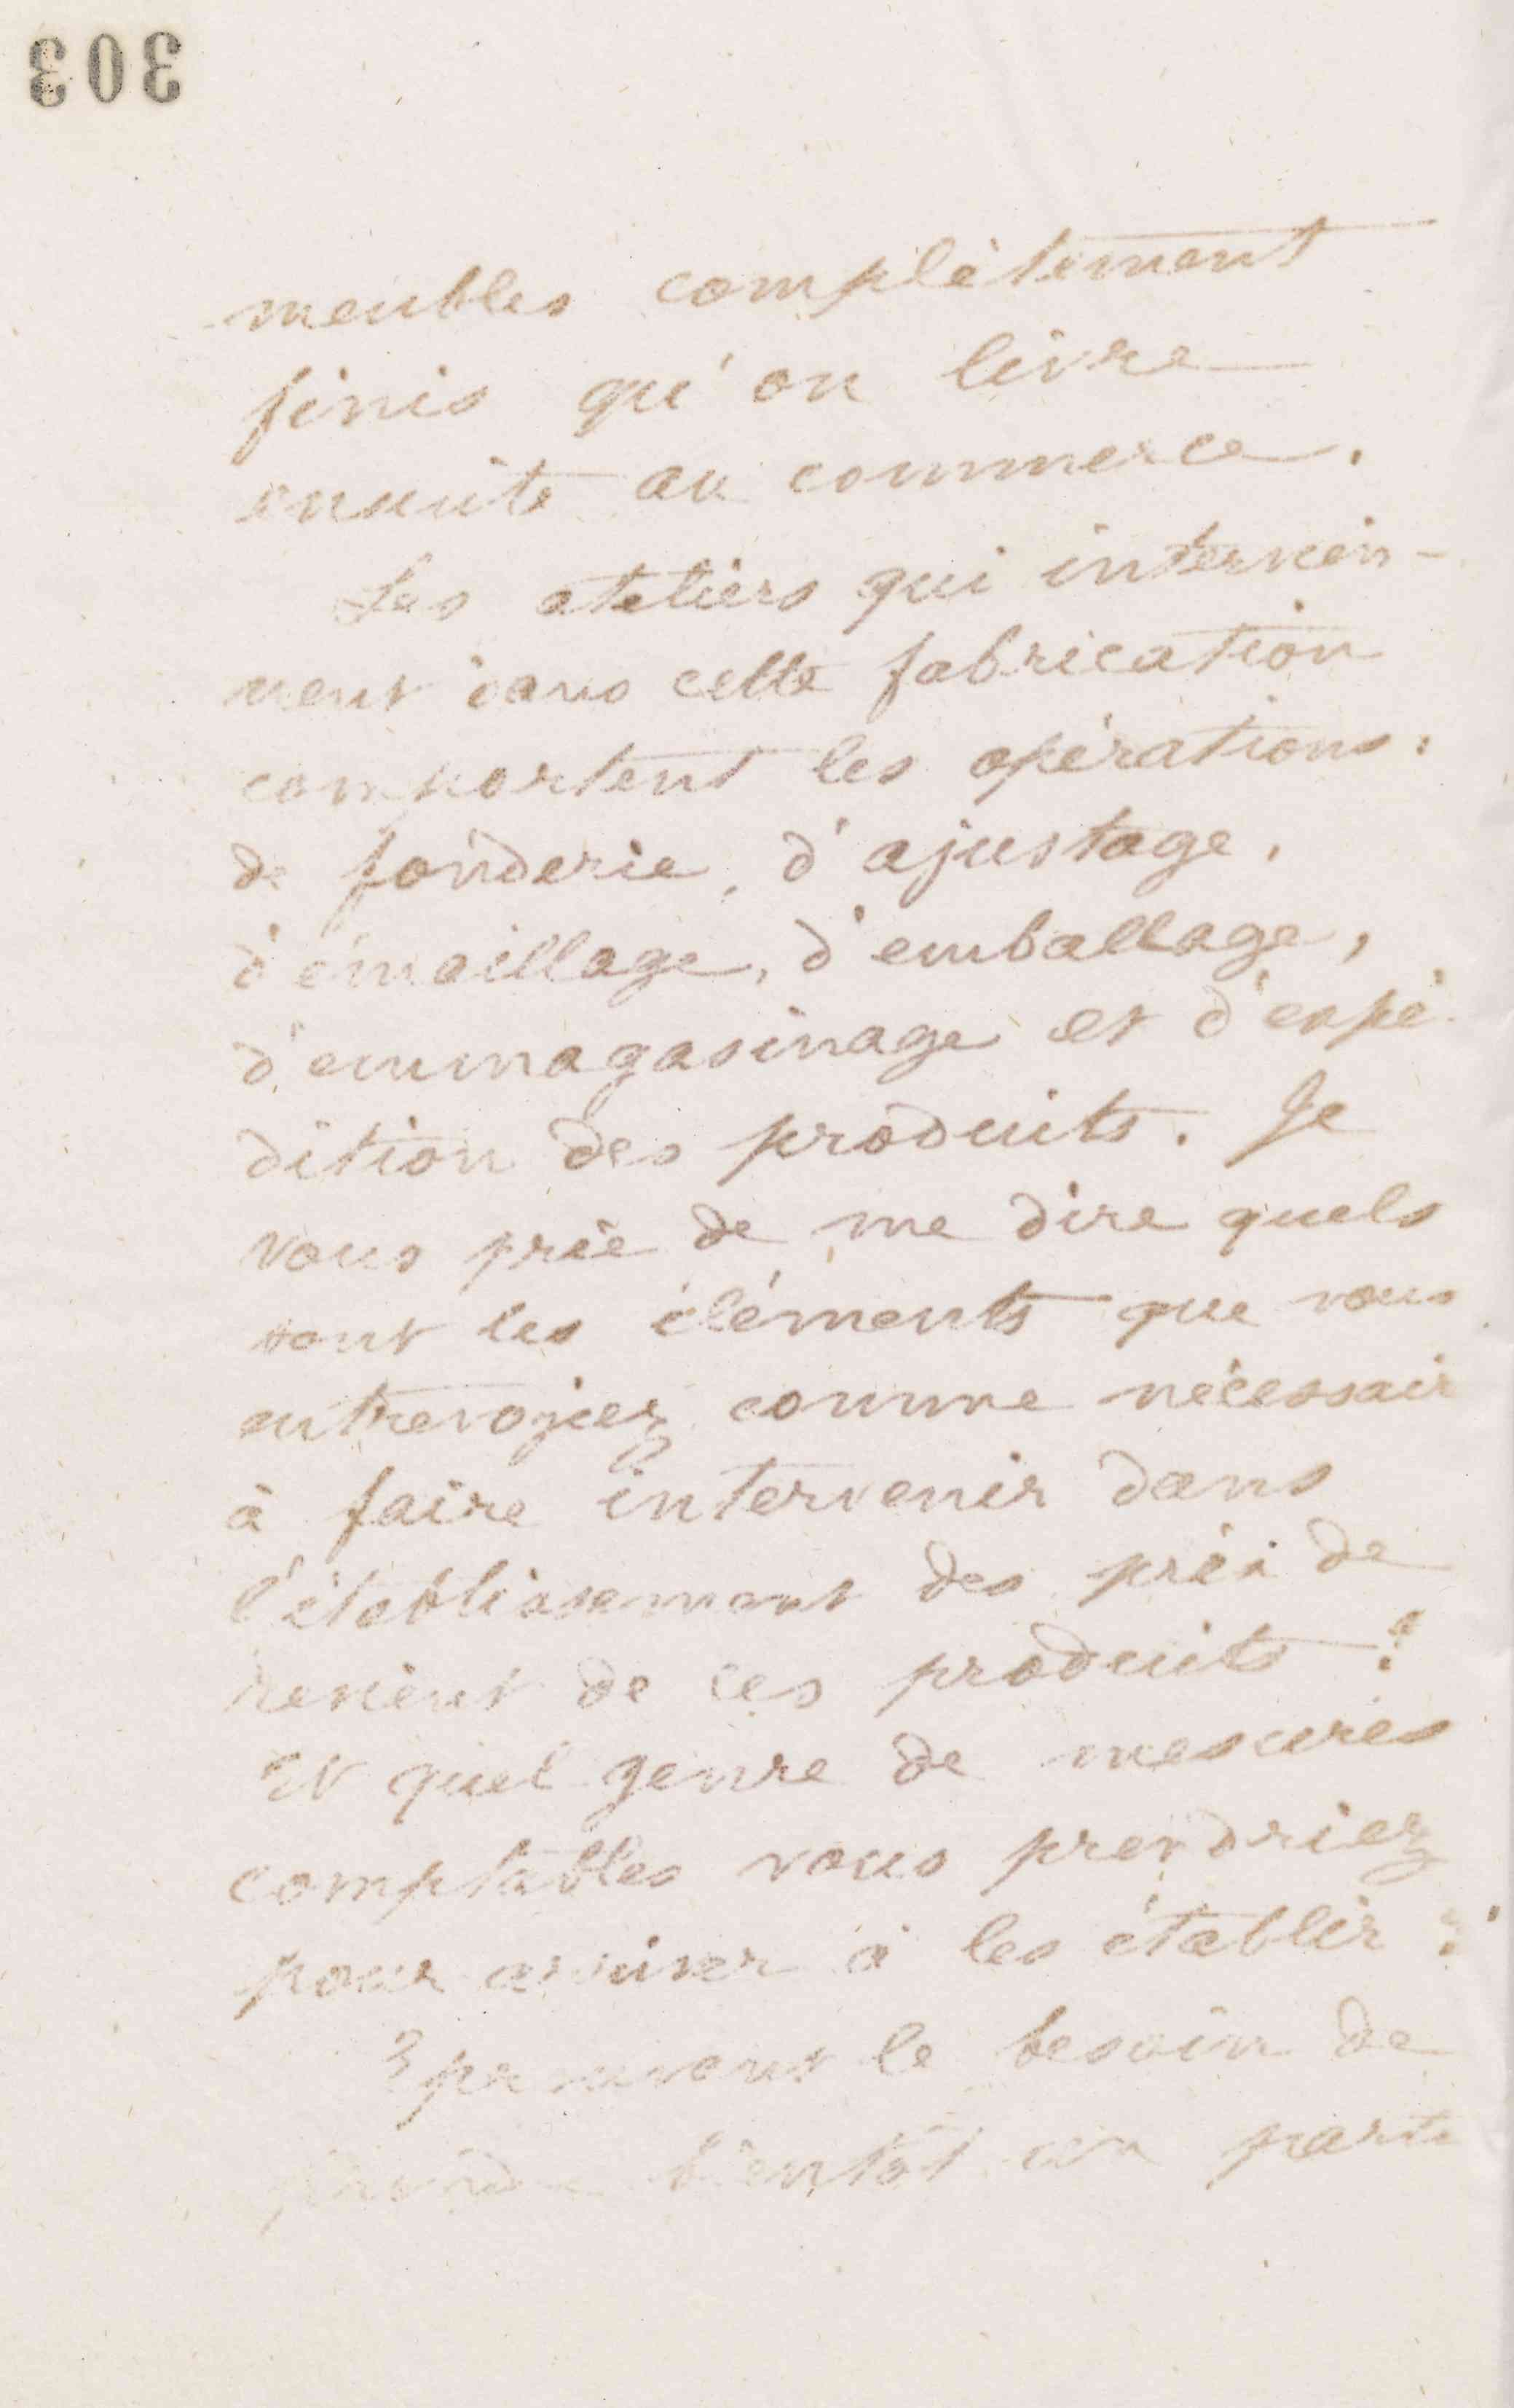 303
meubles complètement
finis qu'on livre
ensuite au commerce.
Les ateliers qui intervien-
nent dans cette fabrication
comportent les opérations:
de fonderie, d'ajustage,
d'émaillage, d'emballage,
d'emmagasinage et d'expé-
dition des produits. Je
vous prie de me dire quels
sont les éléments que vous
entrevoyiez comme nécessair
à faire intervenir dans
l'établissement des prix de
revient de ces produits ?
Et quel genre de mesures
comptables vous prendriez
pour arriver à les établir ?
Eprouvant le besoin de
prendre bientôt un parti